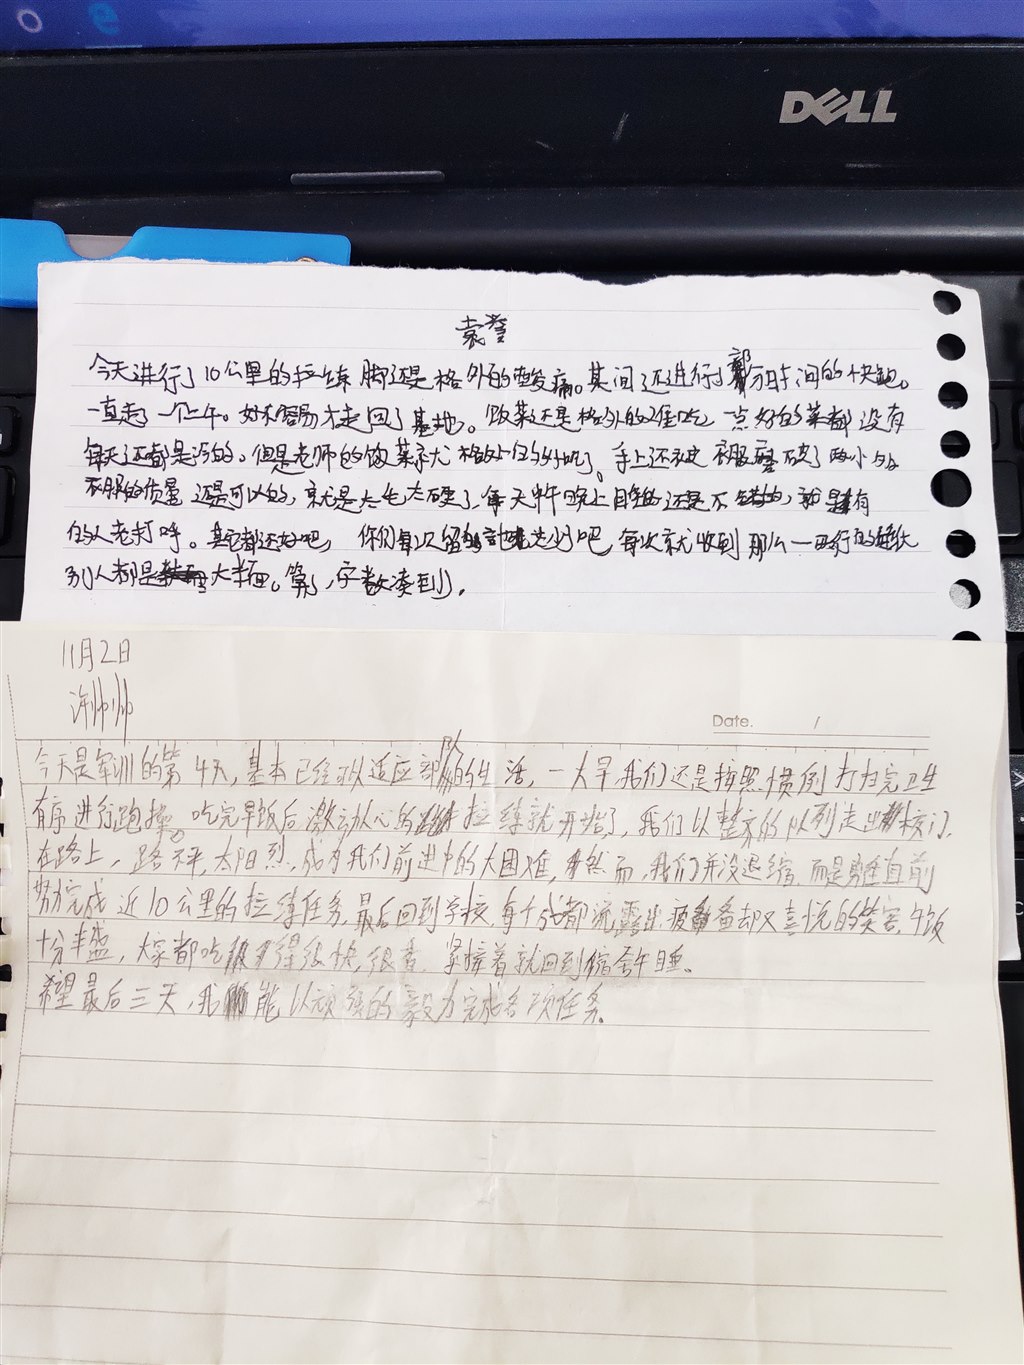 DELL
袁登
今天进行了10公里的拉练 脚还是格外的酸痛。其间还进行了 间的快跑。
一直走了一个上午。好不容易才走回了基地。饭菜还是格外的难吃 一点好的菜都没有
每天还都是冷的。但是老师的饭菜就尤 的好吃了。手上还被衣服磨破了两个
衣服的质量还是可以的,就是太 太硬了 每天中午晚上 睡的还是不错的,就是有
的人老打呼。其它都还好吧, 你们每次留 吧 每次就收到那么一两行的
别人都是 大半面。算了,字数凑到了。
11月2日
许帅帅
Date. /
今天是军训的第4天,基本已经可以适应部队的生活,一大早我们还是按照惯例打扫完卫生
有序进行跑操。吃完早饭后激动人心的拉练就开始了,我们以整齐的队列走出校门。
在路上,路不平,太阳烈,成为我们前进中的大困难,然而,我们并没退缩,而是勇往直前
努力完成近10公里的拉练任务,最后回到学校,每个 都流露出疲惫却又喜悦的笑容,午饭
十分丰盛,大家都吃得很快,很香,紧接着就回到宿舍午睡。
希望最后三天,我能以顽强的毅力完成各项任务。